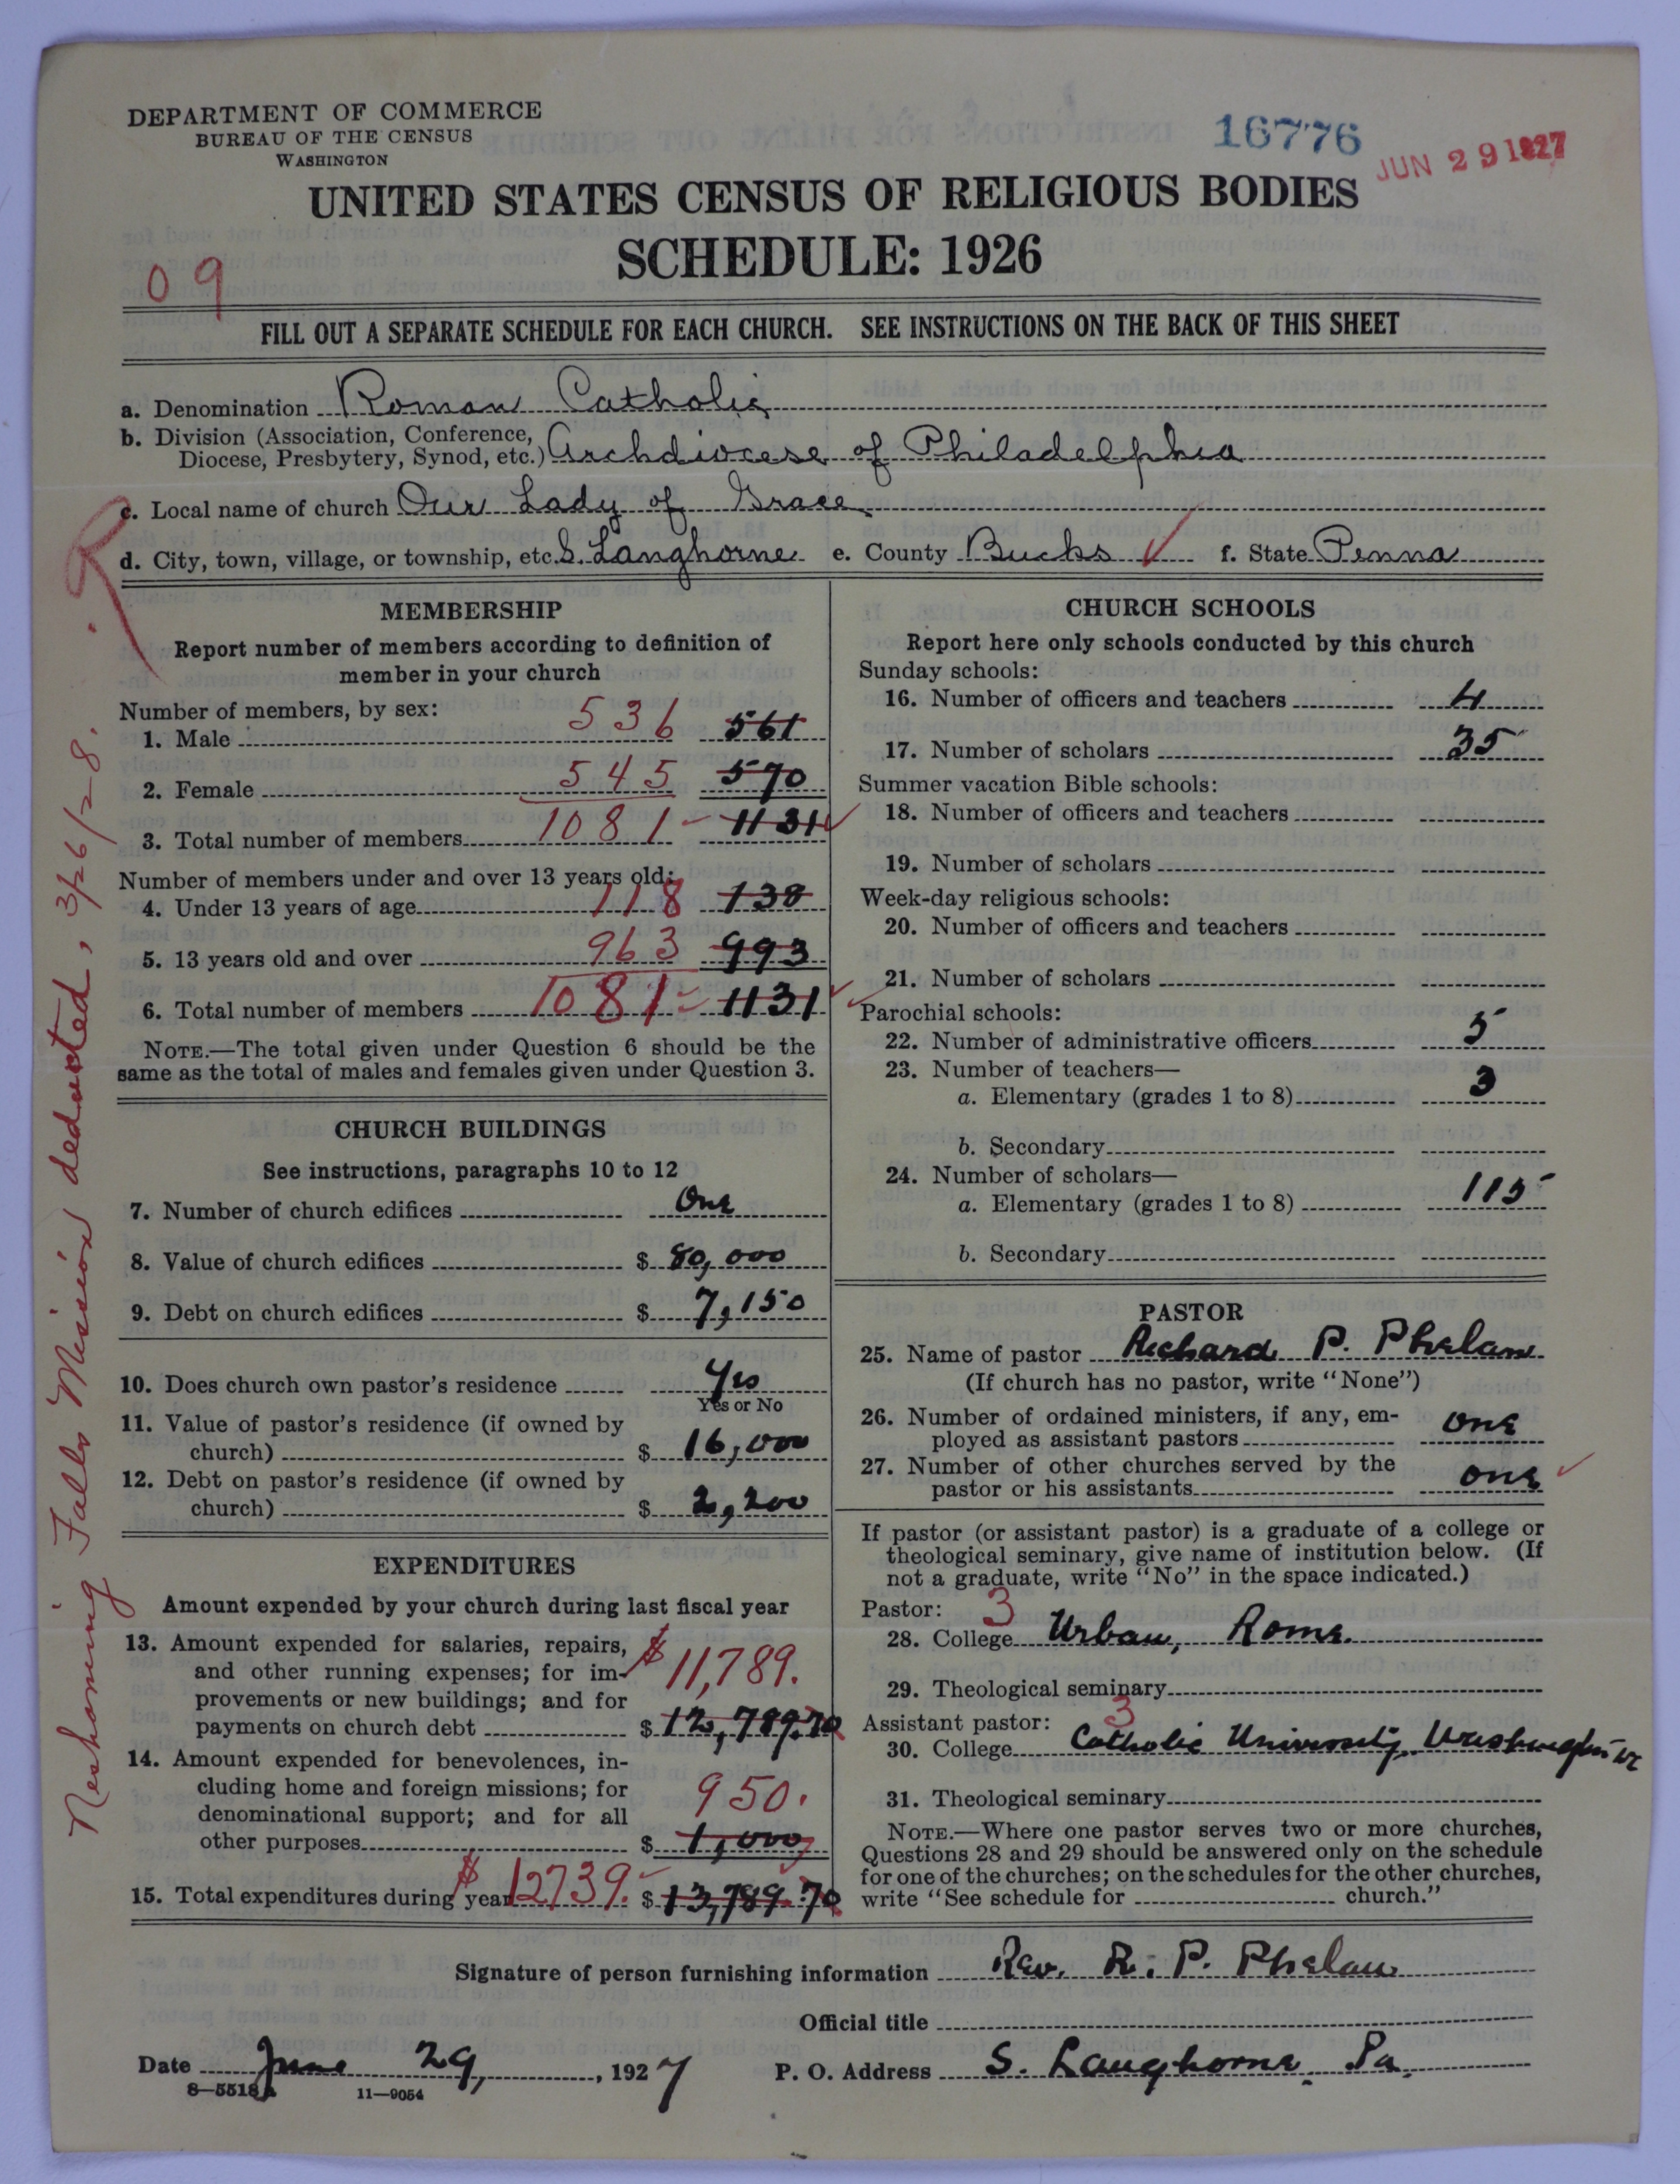 DEPARTMENT OF COMMERCE
BUREAU OF THE CENSUS
WASHINGTON
16776
JUN 29 1927
UNITED STATES CENSUS OF RELIGIOUS BODIES
SCHEDULE: 1926
09
FILL OUT A SEPARATE SCHEDULE FOR EACH CHURCH. SEE INSTRUCTIONS ON THE BACK OF THIS SHEET
a. Denomination Roman Catholic
b. Division (Association, Conference,
Diocese, Presbytery, Synod, etc.) Archdiocese of Philadelphia
c. Local name of church Our Lady of Grace
d. City, town, village, or township, etc. S. Langhorne e. County Bucks ✓ f. State Penna
Neshaming Falls Mission deducted, 3/26/28.
MEMBERSHIP
Report number of members according to definition of
member in your church
Number of members, by sex:
1. Male 536 561
2. Female 545 570
3. Total number of members 1081 1131
Number of members under and over 13 years old:
4. Under 13 years of age 118 138
5. 13 years old and over 963 993
6. Total number of members 1081 1131
NOTE.—The total given under Question 6 should be the
same as the total of males and females given under Question 3.
CHURCH BUILDINGS
See instructions, paragraphs 10 to 12
7. Number of church edifices One
8. Value of church edifices $ 80,000
9. Debt on church edifices $ 7,150
10. Does church own pastor's residence Yes
Yes or No
11. Value of pastor's residence (if owned by
church) $ 16,000
12. Debt on pastor's residence (if owned by
church) $ 2,200
EXPENDITURES
Amount expended by your church during last fiscal year
13. Amount expended for salaries, repairs,
and other running expenses; for im- $ 11,789.
provements or new buildings; and for
payments on church debt $ 12,789.70
14. Amount expended for benevolences, in-
cluding home and foreign missions; for
denominational support; and for all 950.
other purposes $ 1,000
15. Total expenditures during year $12739. $ 13,789.70
CHURCH SCHOOLS
Report here only schools conducted by this church
Sunday schools:
16. Number of officers and teachers 4
17. Number of scholars 35
Summer vacation Bible schools:
18. Number of officers and teachers
19. Number of scholars
Week-day religious schools:
20. Number of officers and teachers
21. Number of scholars
Parochial schools:
22. Number of administrative officers 5
23. Number of teachers—
a. Elementary (grades 1 to 8) 3
b. Secondary
24. Number of scholars—
a. Elementary (grades 1 to 8) 115
b. Secondary
PASTOR
25. Name of pastor Richard P. Phelan
(If church has no pastor, write "None")
26. Number of ordained ministers, if any, em-
ployed as assistant pastors one
27. Number of other churches served by the
pastor or his assistants one ✓
If pastor (or assistant pastor) is a graduate of a college or
theological seminary, give name of institution below. (If
not a graduate, write "No" in the space indicated.)
Pastor: 3
28. College Urban, Rome.
29. Theological seminary
Assistant pastor: 3
30. College Catholic University, Washington
31. Theological seminary
NOTE.—Where one pastor serves two or more churches,
Questions 28 and 29 should be answered only on the schedule
for one of the churches; on the schedules for the other churches,
write "See schedule for church."
Signature of person furnishing information Rev. R. P. Phelan
Official title
Date June 29, 1927 P. O. Address S. Langhorne, Pa.
8—5518 A 11—9054